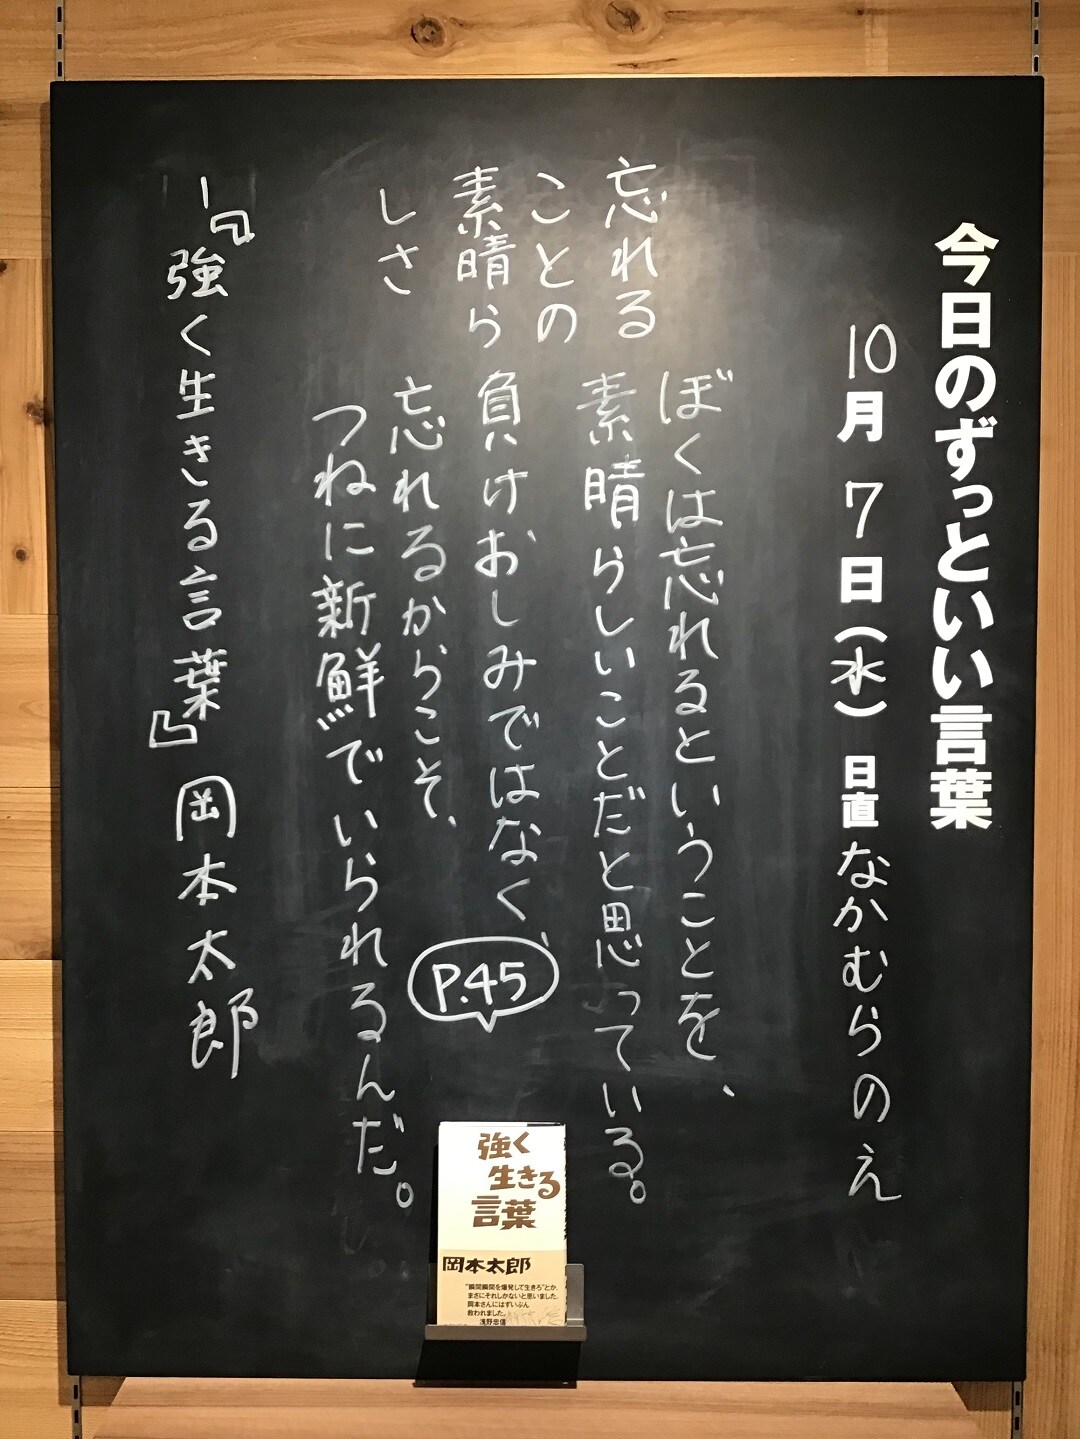 今日のずっといい言葉
10月7日(水) 日直 なかむらのえ
忘れる
ことの
素晴ら
しさ
ぼくは忘れるということを、
素晴らしいことだと思っている。
負けおしみではなく、
忘れるからこそ、
つねに新鮮でいられるんだ。
P.45
―『強く生きる言葉』岡本太郎
強く
生きる
言葉
岡本太郎
"瞬間瞬間を爆発して生きろ"とか、
まさにそれしかないと思いました。
岡本さんにはずいぶん
救われました。
浅野忠信